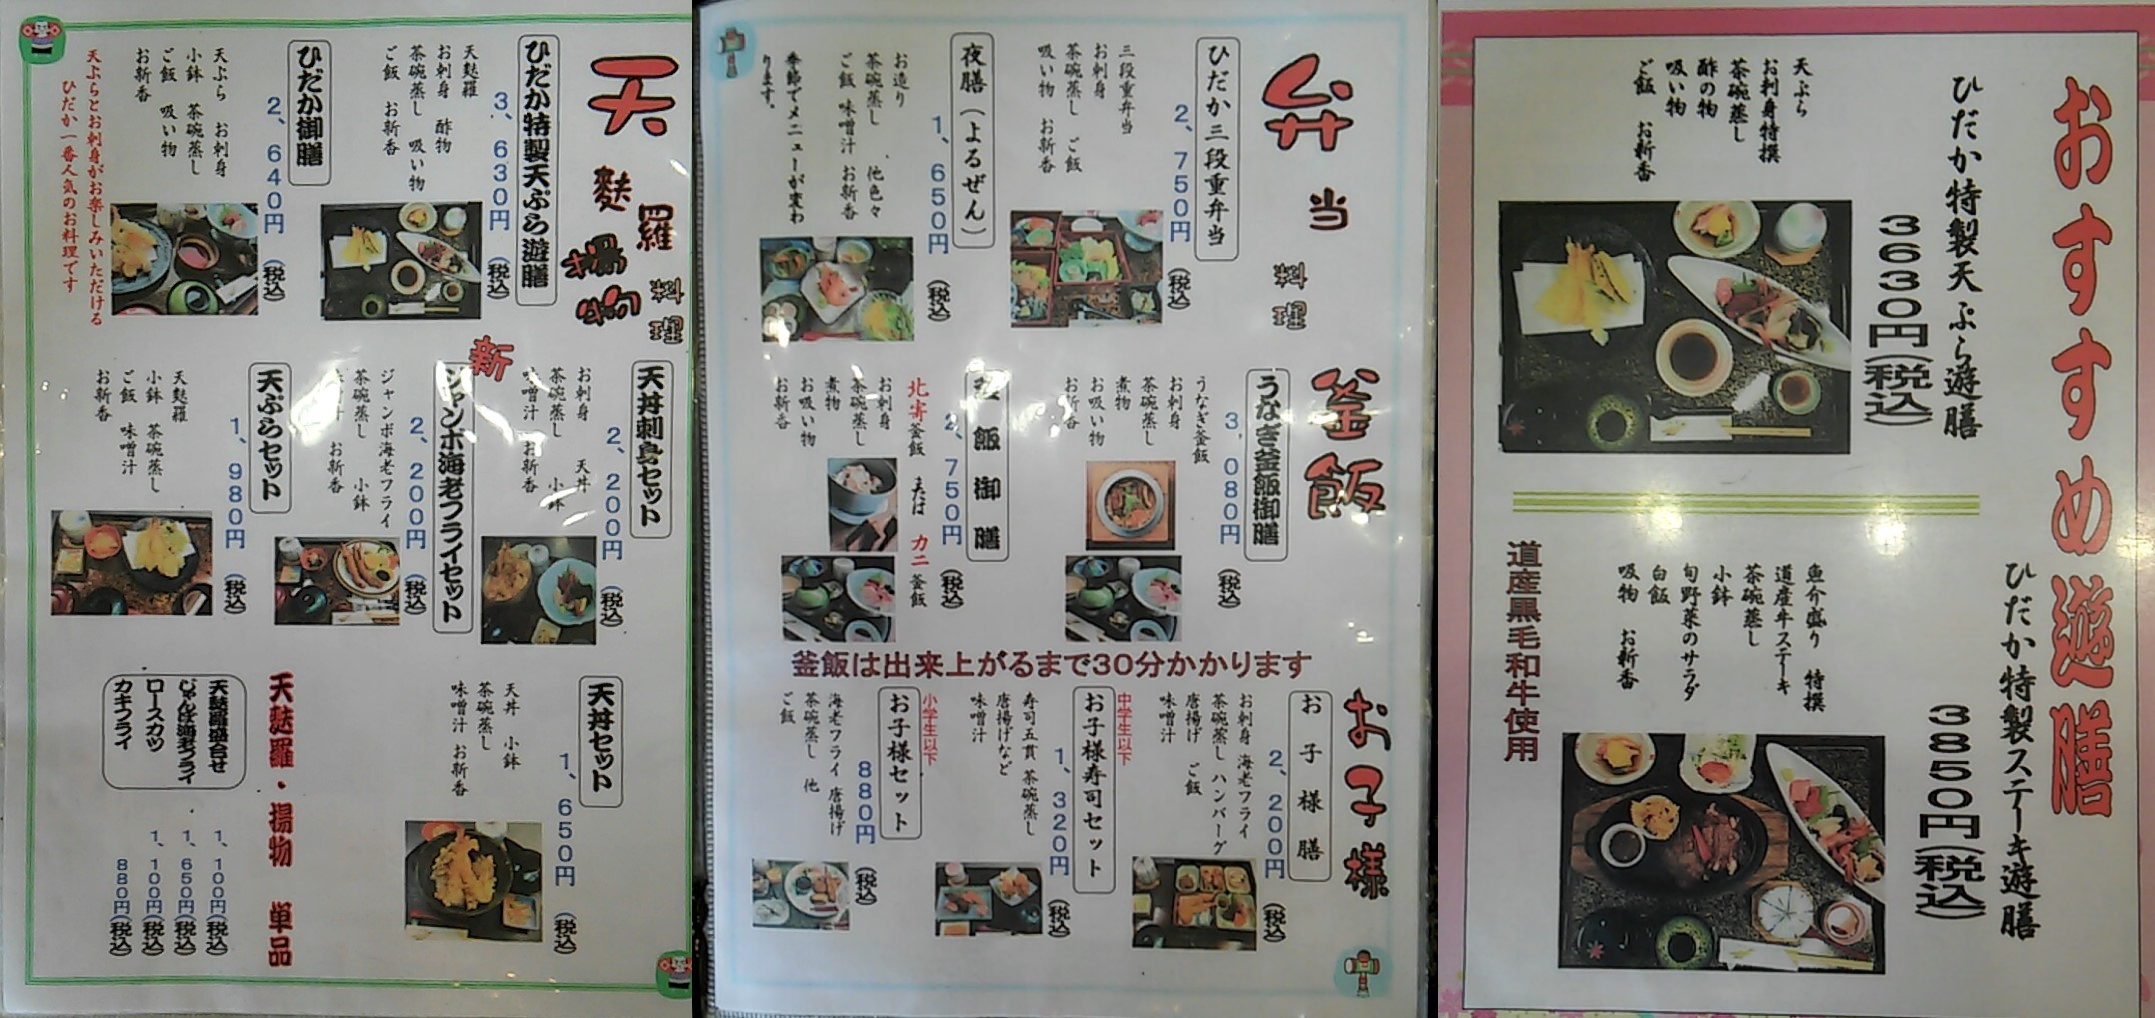 天麩羅料理
揚物
ひだか特製天ぷら遊膳
3、630円(税込)
天麩羅
お刺身 酢物
茶碗蒸し 吸い物
ご飯 お新香
ひだか御膳
2、640円(税込)
天ぷら お刺身
小鉢 茶碗蒸し
ご飯 吸い物
お新香
天ぷらとお刺身がお楽しみいただける
ひだか一番人気のお料理です
天丼刺身セット
2、200円(税込)
お刺身 天丼
茶碗蒸し 小鉢
味噌汁 お新香
新
ジャンボ海老フライセット
2、200円(税込)
ジャンボ海老フライ
茶碗蒸し 小鉢
お新香
天ぷらセット
1、980円(税込)
天麩羅
小鉢 茶碗蒸し
ご飯 味噌汁
お新香
天丼セット
1、650円(税込)
天丼 小鉢
茶碗蒸し
味噌汁 お新香
天麩羅・揚物 単品
天麩羅盛合せ 1、100円(税込)
じゃんぼ海老フライ 1、650円(税込)
ロースカツ 1、100円(税込)
カキフライ 880円(税込)
弁当料理
ひだか三段重弁当
2、750円(税込)
三段重弁当
お刺身
茶碗蒸し ご飯
吸い物 お新香
夜膳(よるぜん)
1、650円(税込)
お造り
茶碗蒸し、他色々
ご飯 味噌汁 お新香
季節でメニューが変わ
ります。
釜飯
うなぎ釜飯御膳
3、080円(税込)
うなぎ釜飯
お刺身
茶碗蒸し
煮物
お吸い物
お新香
飯御膳
2、750円(税込)
北寄釜飯 または カニ釜飯
お刺身
茶碗蒸し
煮物
お吸い物
お新香
釜飯は出来上がるまで30分かかります
お子様
お子様膳
2、200円(税込)
お刺身 海老フライ
茶碗蒸し ハンバーグ
唐揚げ ご飯
味噌汁
中学生以下
お子様寿司セット
1、320円(税込)
寿司五貫 茶碗蒸し
唐揚げなど
味噌汁
小学生以下
お子様セット
880円(税込)
海老フライ 唐揚げ
茶碗蒸し 他
ご飯
おすすめ遊膳
ひだか特製天ぷら遊膳
3630円(税込)
天ぷら
お刺身特撰
茶碗蒸し
酢の物
吸い物
ご飯 お新香
ひだか特製ステーキ遊膳
3850円(税込)
魚介盛り 特撰
道産牛ステーキ
茶碗蒸し
小鉢
旬野菜のサラダ
白飯
吸物 お新香
道産黒毛和牛使用